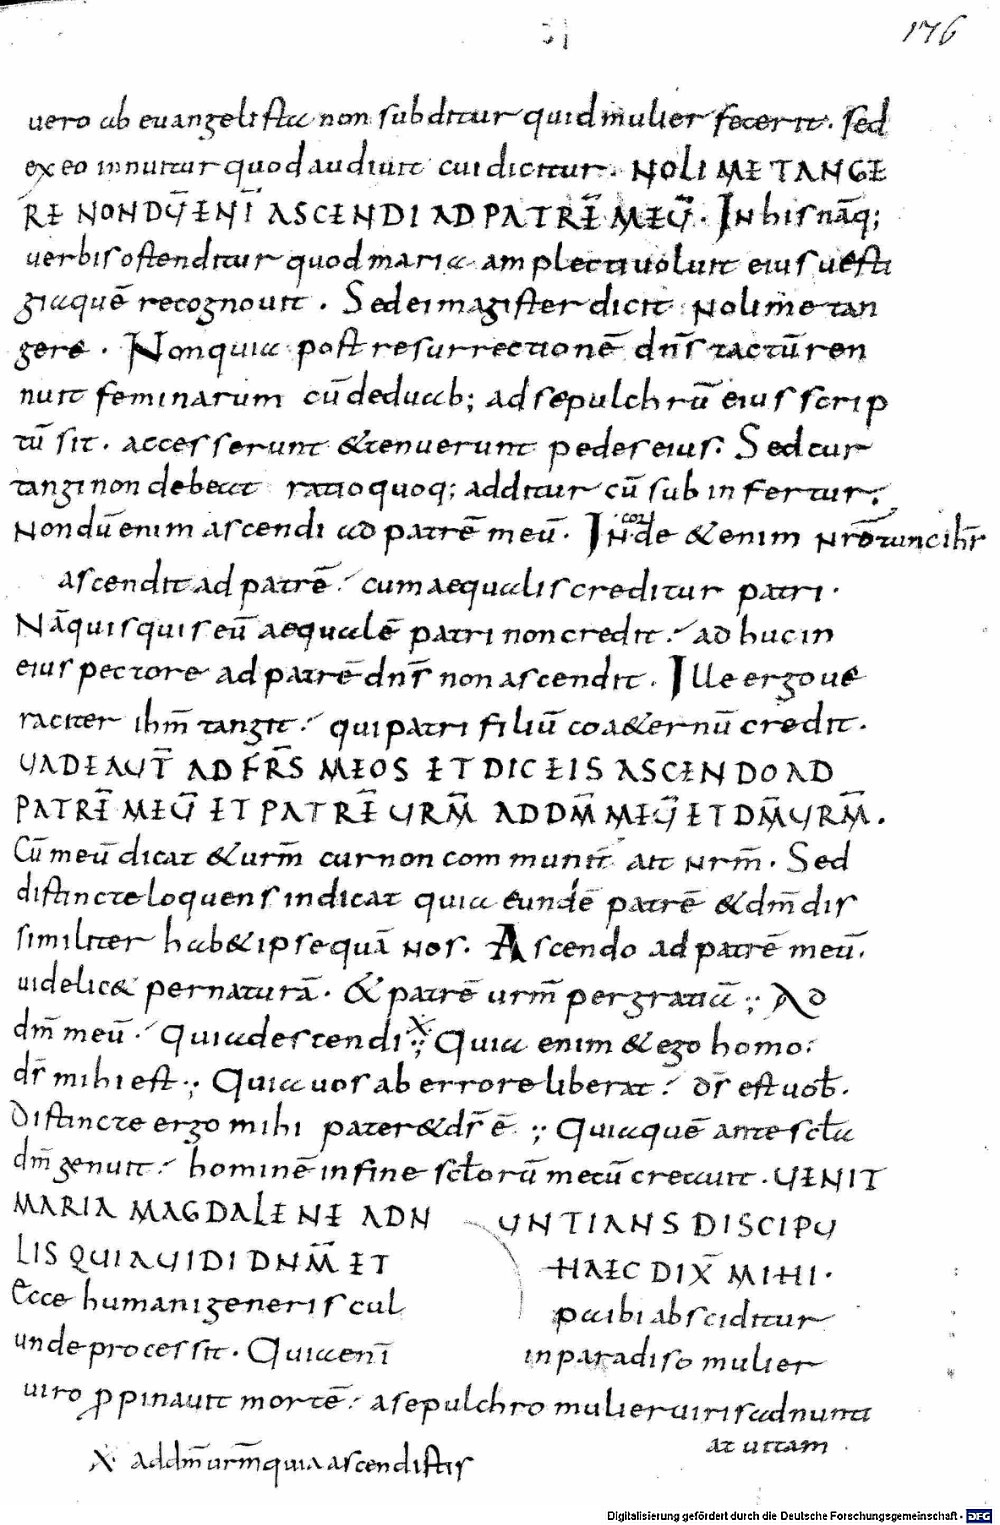 176
uero ab euangelista non subditur quid mulier fecerit. sed
ex eo innuitur quod audiuit cui dicitur. NOLI ME TANGE
RE NONDŪ ENĪ ASCENDI AD PATRĒ MEŪ. In his nāq;
uerbis ostenditur quod maria amplecti uoluit eius uesti
giaquē recognouit. Sed ei magister dicit Noli me tan
gere. Non quia post resurrectionē dn̄s tactū ren
nuit feminarum cū de duab; ad sepulchrū eius scrip
tū sit. accesserunt & tenuerunt pedes eius. Sed cur
tangi non debeat ratio quoq; additur cū subinfertur.
Nondū enim ascendi ad patrē meū. In cor de & enim nr̄o tunc ih̄s
ascendit ad patrē. cum aequalis creditur patri.
Nā quisquis eū aequalē patri non credit. adhuc in
eius pectore ad patrē dn̄s non ascendit. Ille ergo ue
raciter ihm̄ tangit. qui patri filiū coa&ernū credit.
UADE AUT̄ AD FR̄S MEOS ET DIC EIS ASCENDO AD
PATRĒ MEŪ ET PATRĒ URM̄ AD DM̄ MEŪ ET DM̄ URM̄.
Cū meū dicat & urm̄ cur non communit̄ ait nrm̄. Sed
distincte loquens indicat quia eundē patrē & dm̄ dis
similiter hab& ipse quā nos. Ascendo ad patrē meū.
uidelic& per naturā. & patrē urm̄ per gratiā. Ad
dm̄ meū. Quia descendi X Quia enim & ego homo.
ds̄ mihi est. Quia uos ab errore liberat. ds̄ est uob̄.
Distincte ergo mihi pater & ds̄ ē. Quia quē ante sc̄la
dm̄ genuit. hominē in fine sc̄lorū mecū creauit. UENIT
MARIA MAGDALENE ADN UNTIANS DISCIPU
LIS QUIA UIDI DNM̄ ET HAEC DIX̄ MIHI.
Ecce humani generis cul pa ibi absciditur
unde processit. Quia enī in paradiso mulier
uiro ꝓpinauit mortē. a sepulchro mulier uiris adnunti
at uitam
X ad dm̄ urm̄ quia ascendistis
Digitalisierung gefördert durch die Deutsche Forschungsgemeinschaft - DFG